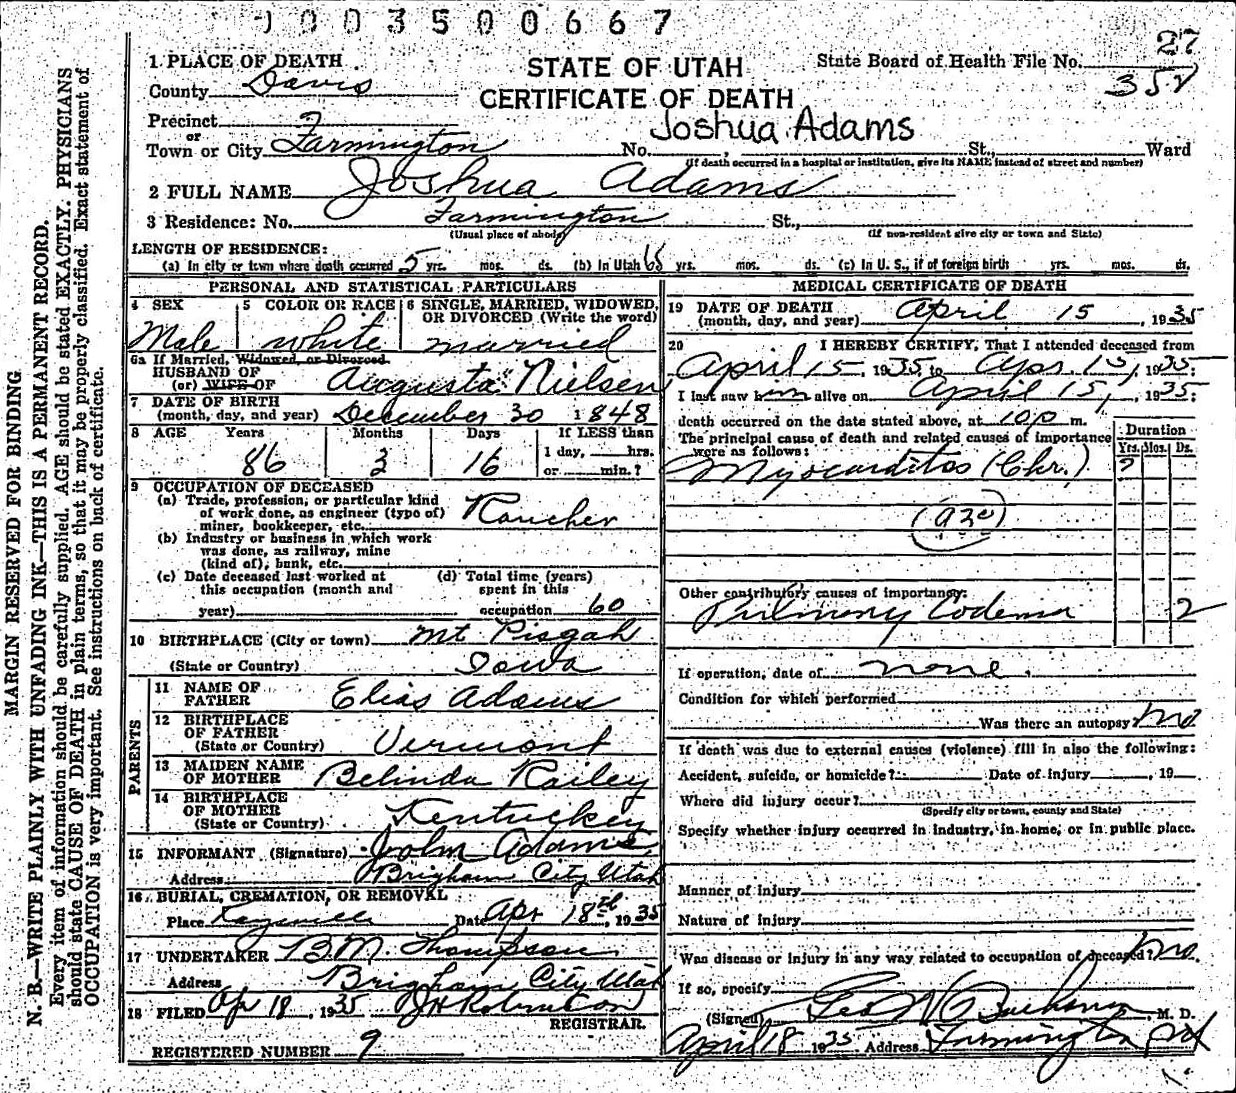 1003500667
27
352
State Board of Health File No.
STATE OF UTAH
CERTIFICATE OF DEATH
Joshua Adams
1 PLACE OF DEATH
County Davis
Precinct
or
Town or City Farmington No. , St., Ward
(If death occurred in a hospital or institution, give its NAME instead of street and number)
2 FULL NAME Joshua Adams
3 Residence: No. Farmington St.,
(Usual place of abode) (If non-resident give city or town and State)
LENGTH OF RESIDENCE:
(a) In city or town where death occurred 5 yrs. mos. ds. (b) In Utah yrs. mos. ds. (c) In U. S., if of foreign birth yrs. mos. ds.
PERSONAL AND STATISTICAL PARTICULARS
4 SEX 5 COLOR OR RACE 6 SINGLE, MARRIED, WIDOWED, OR DIVORCED (Write the word)
Male white married
6a If Married, Widowed, or Divorced
HUSBAND OF
(or) WIFE OF Augusta Nielsen
7 DATE OF BIRTH
(month, day, and year) December 30 1848
8 AGE Years Months Days If LESS than
1 day, hrs.
86 3 16 or min.?
9 OCCUPATION OF DECEASED
(a) Trade, profession, or particular kind
of work done, as engineer (type of)
miner, bookkeeper, etc. Rancher
(b) Industry or business in which work
was done, as railway, mine
(kind of), bank, etc.
(c) Date deceased last worked at (d) Total time (years)
this occupation (month and spent in this
year) occupation 60
10 BIRTHPLACE (City or town) Mt Pisgah
(State or Country) Iowa
PARENTS
11 NAME OF
FATHER Elias Adams
12 BIRTHPLACE
OF FATHER
(State or Country) Vermont
13 MAIDEN NAME
OF MOTHER Belinda Railey
14 BIRTHPLACE
OF MOTHER
(State or Country) Kentuckey
15 INFORMANT (Signature) John Adams
Address Brigham City Utah
16 BURIAL, CREMATION, OR REMOVAL
Place Kaysville Date Apr 18th, 1935
17 UNDERTAKER B.M. Thompson
Address Brigham City Utah
18 FILED Ap 18, 1935 JH Robinson
REGISTRAR.
REGISTERED NUMBER 9
MEDICAL CERTIFICATE OF DEATH
19 DATE OF DEATH
(month, day, and year) April 15, 1935
20 I HEREBY CERTIFY, That I attended deceased from
April 15, 1935 to Apr. 15, 1935:
I last saw him alive on April 15, 1935:
death occurred on the date stated above, at 10 p m.
The principal cause of death and related causes of importance
were as follows:
Duration
Yrs. Mos. Ds.
Myocarditos (Chr.) ?
(930)
Other contributory causes of importancy:
Pulmony Eodema 2
If operation, date of none.
Condition for which performed
Was there an autopsy no
If death was due to external causes (violence) fill in also the following:
Accident, suicide, or homicide? Date of injury , 19
Where did injury occur?
(Specify city or town, county and State)
Specify whether injury occurred in industry, in home, or in public place.
Manner of injury
Nature of injury
Was disease or injury in any way related to occupation of deceased? no.
If so, specify
(Signed) , M. D.
April 18 1935 Address Farmington
MARGIN RESERVED FOR BINDING
N. B.—WRITE PLAINLY WITH UNFADING INK—THIS IS A PERMANENT RECORD.
Every item of information should be carefully supplied. AGE should be stated EXACTLY. PHYSICIANS
should state CAUSE OF DEATH in plain terms, so that it may be properly classified. Exact statement of
OCCUPATION is very important. See instructions on back of certificate.